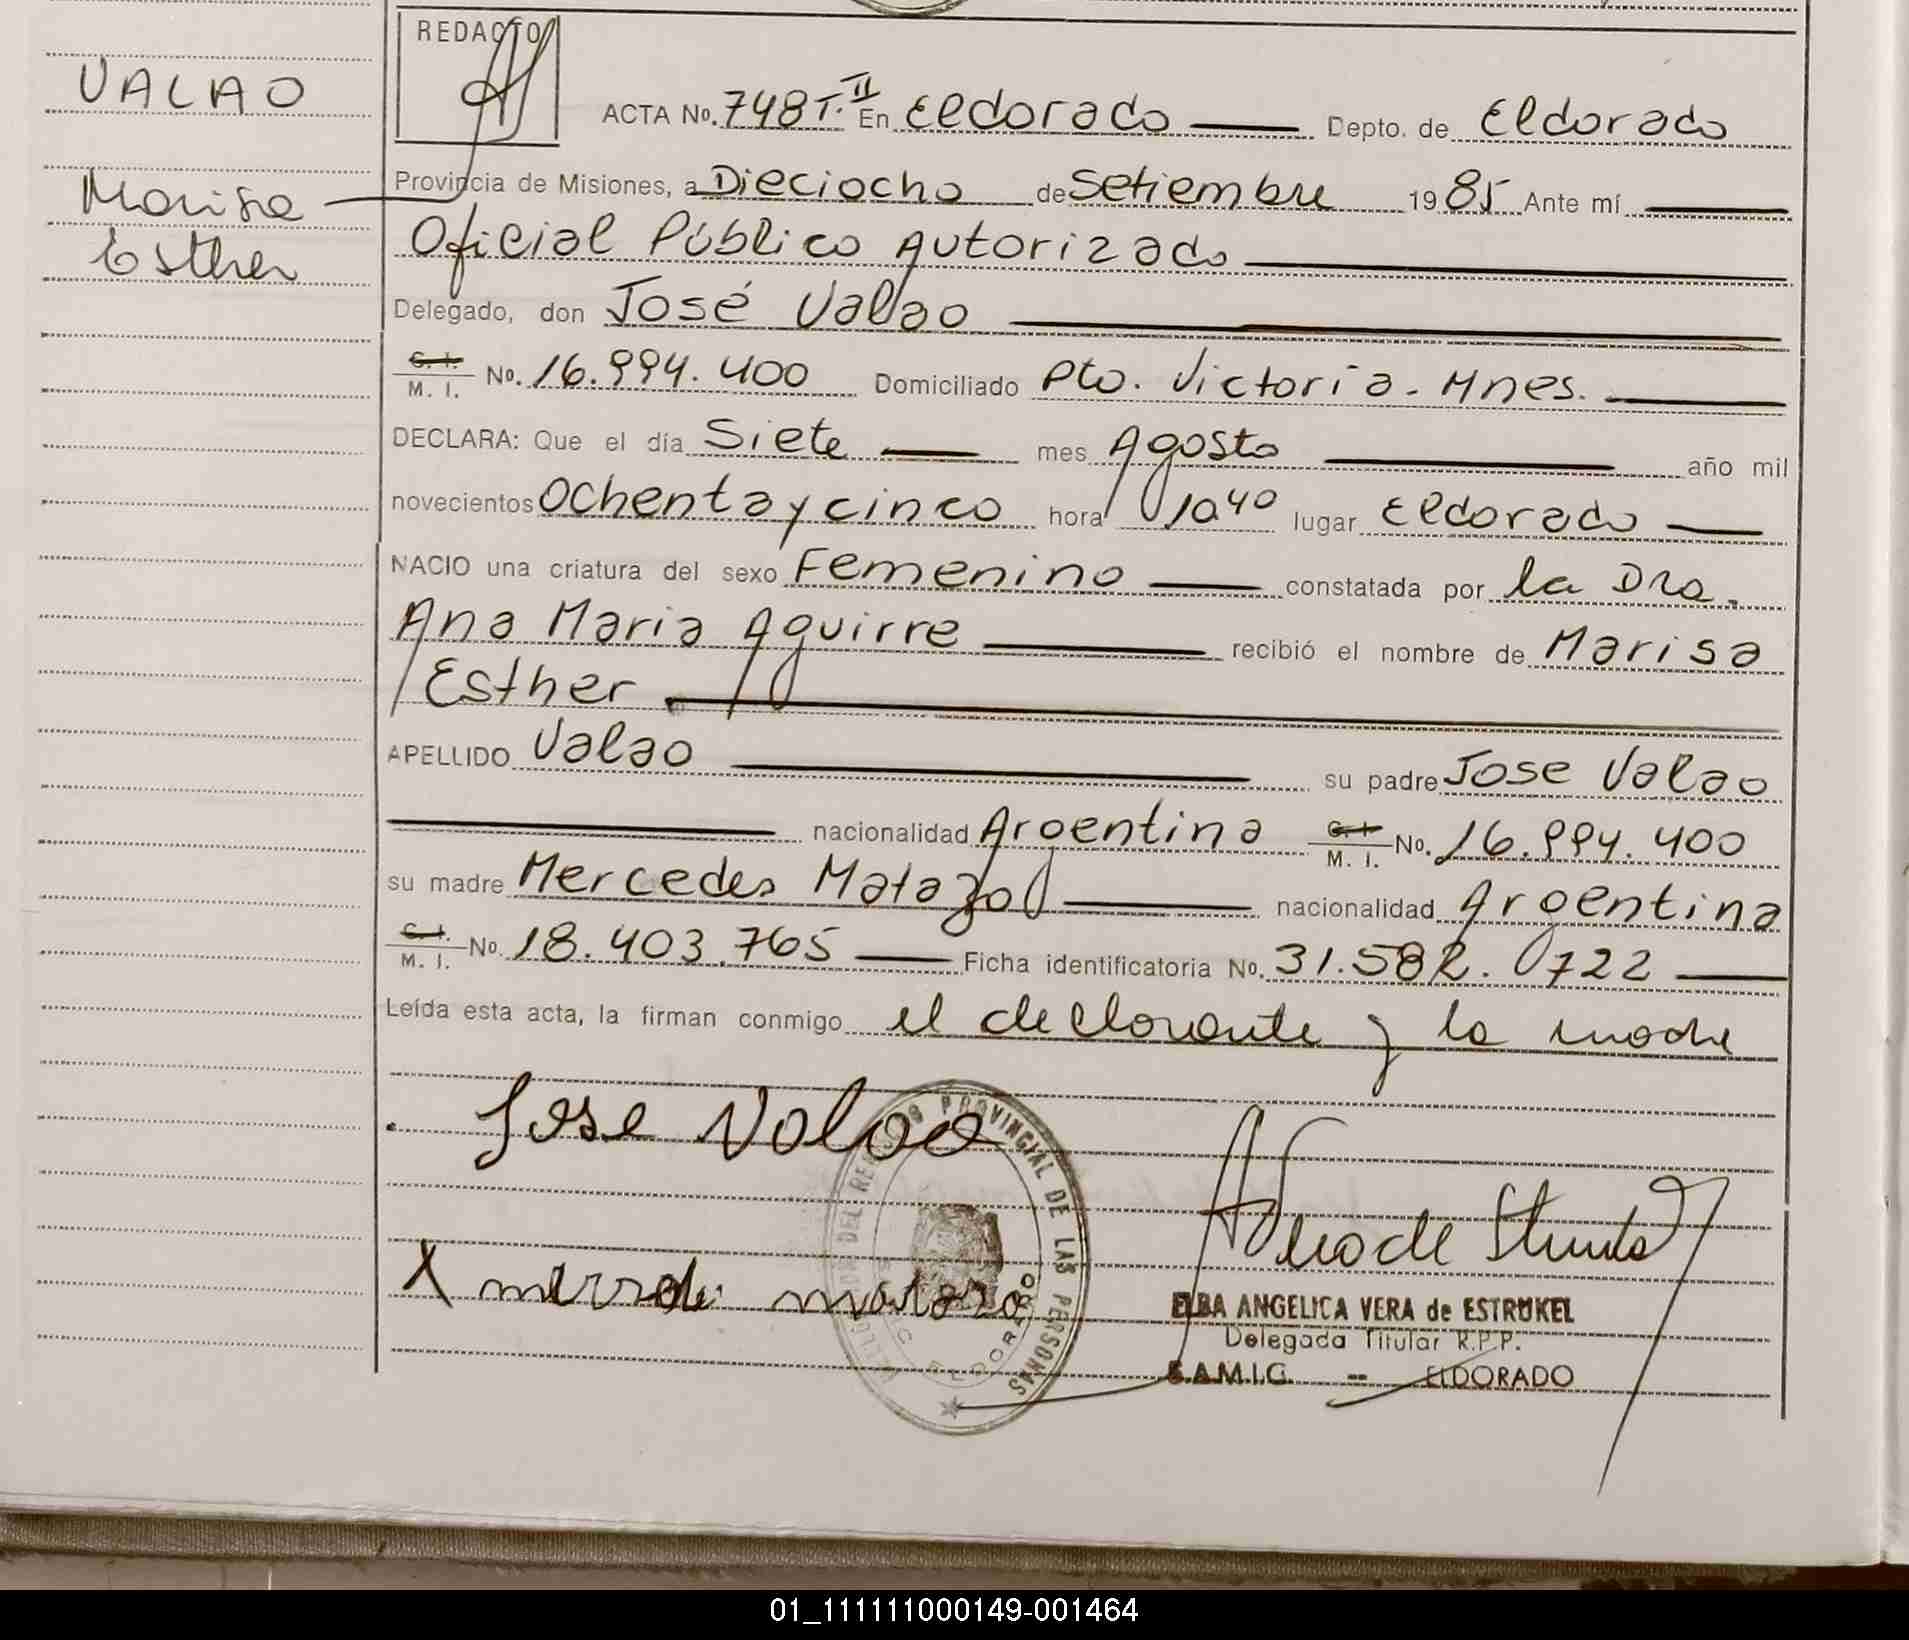 REDACTO
VALAO
Marisa
Esther
ACTA No. 748 T. II En Eldorado Depto. de Eldorado
Provincia de Misiones, a Dieciocho de Setiembre 1985 Ante mí
Oficial Público Autorizado
Delegado, don José Valao
C. I. M. I. No. 16.994.400 Domiciliado Pto. Victoria - Mnes.
DECLARA: Que el día Siete mes Agosto año mil
novecientos Ochenta y cinco hora 10.40 lugar Eldorado
NACIO una criatura del sexo Femenino constatada por la Dra.
Ana Maria Aguirre recibió el nombre de Marisa
Esther
APELLIDO Valao su padre Jose Valao
nacionalidad Argentina C. I. M. I. No. 16.994.400
su madre Mercedes Matazo nacionalidad Argentina
C. I. M. I. No. 18.403.765 Ficha identificatoria No. 31.582.722
Leída esta acta, la firman conmigo el declarante y la madre
Jose Valao
PROVINCIAL DE LAS PERSONAS
ELDORADO
X
ELBA ANGELICA VERA de ESTRUKEL
Delegada Titular R.P.P.
S.A.M.I.C. -- ELDORADO
01_111111000149-001464